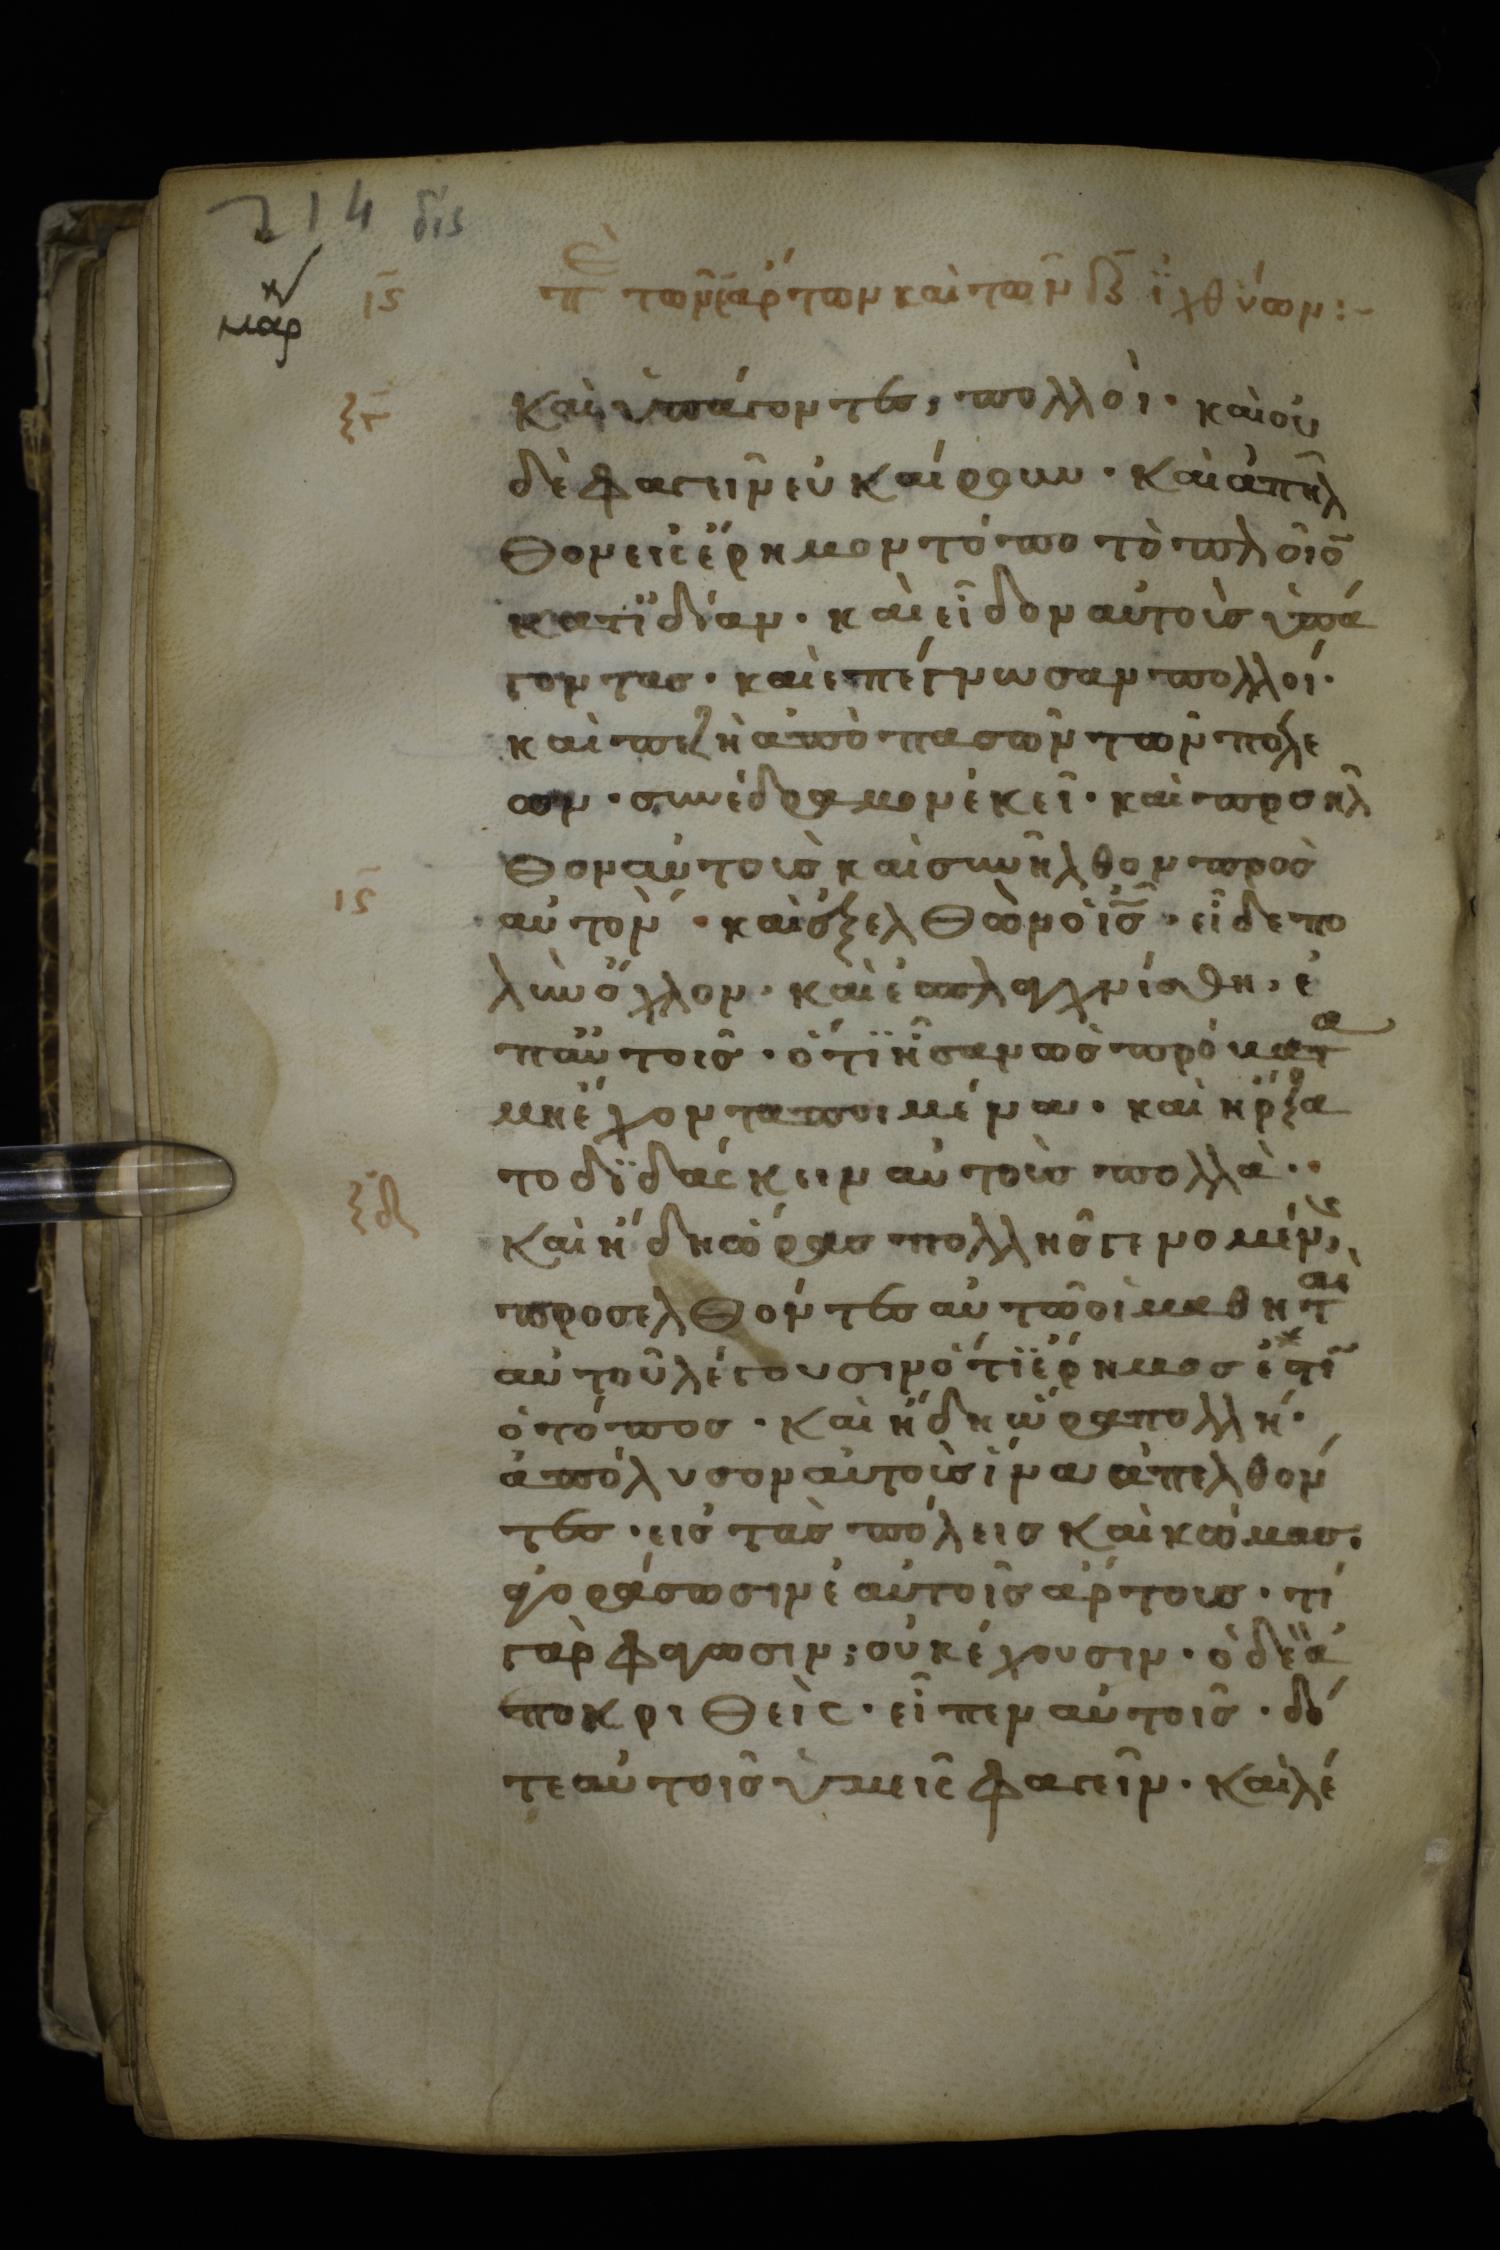 214 δίς
μάρκ
ις π(ε) τῶν ε ἄρτων καὶ τῶν β ἰχθύων :~
ξγ και υπάγοντες, πολλοὶ · καὶ οὐ
δὲ φαγεῖν εὐκαίρουν · καὶ ἀπῆλ
θον εἰς ἔρημον τόπο τὸ πλοῖō
κατϊδίαν · καὶ εἶδον αὐτοὺς ὑπά
γοντας · καὶ επέγνωσαν πολλοί ·
καὶ πεζῆ ἀπὸ πασῶν τῶν πόλε
ων · συνέδραμον ἐκεῖ · καὶ προσῆλ
θον αὐτοὺς καὶ συνῆλθον πρὸς
ις αὐτὸν · καὶ ἐξελθὼν ὁ ἰς · εἶδε πο
λὺν ὄχλον · καὶ ἐσπλαγχνίσθη, ἐ
π αὐτοῖς · ὅτι ἦσαν ὡς πρόβατα
μὴ ἔχοντα ποιμένα · καὶ ἤρξα
το διδάσκειν αὐτοὺς πολλὰ ·
ξδ καὶ ἤδη ὥρας πολλῆς γενομένης,
προσελθόντες αὐτῶ οἱ μαθηταὶ
αὐτοῦ λέγουσιν ὅτι ἔρημος ἐστι
ὁ τόπος · καὶ ἤδη ὥρα πολλή ·
ἀπόλυσον αὐτοὺς ἵνα ἀπελθόν
τες · εἰς τὰς πόλεις καὶ κώμας ·
ἀγοράσωσιν ἑαυτοῖς ἄρτους · τί
γὰρ φάγωσιν ; οὐκ ἔχουσιν · ὁ δὲ ἀ
ποκριθεὶς · εἶπεν αὐτοῖς · δό
τε αὐτοῖς ὑμεῖς φαγεῖν · καὶ λέ